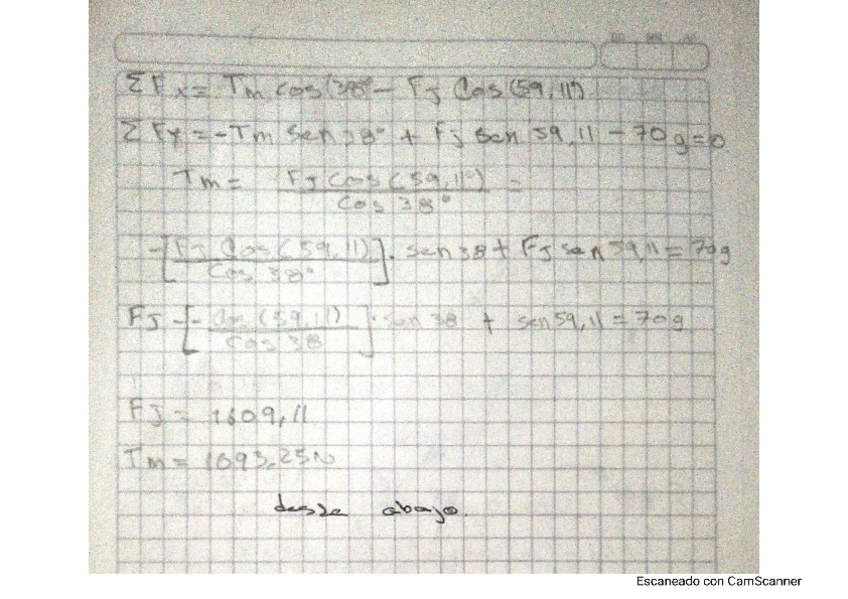 ΣFx = Tm cos(38° - FJ Cos (59,11)
ΣFy = -Tm sen 38° + FJ sen 59,11 - 70g=0
Tm = FJ Cos (59,11°) / Cos 38° =
-[FJ Cos (59,11) / Cos 38°] . sen 38 + FJ sen 59,11 = 70g
FJ -[- Cos (59,11) / Cos 38] . sen 38 + sen 59,11 = 70g
FJ = 1609,11
Tm = 1093,25N
desde abajo.
Escaneado con CamScanner